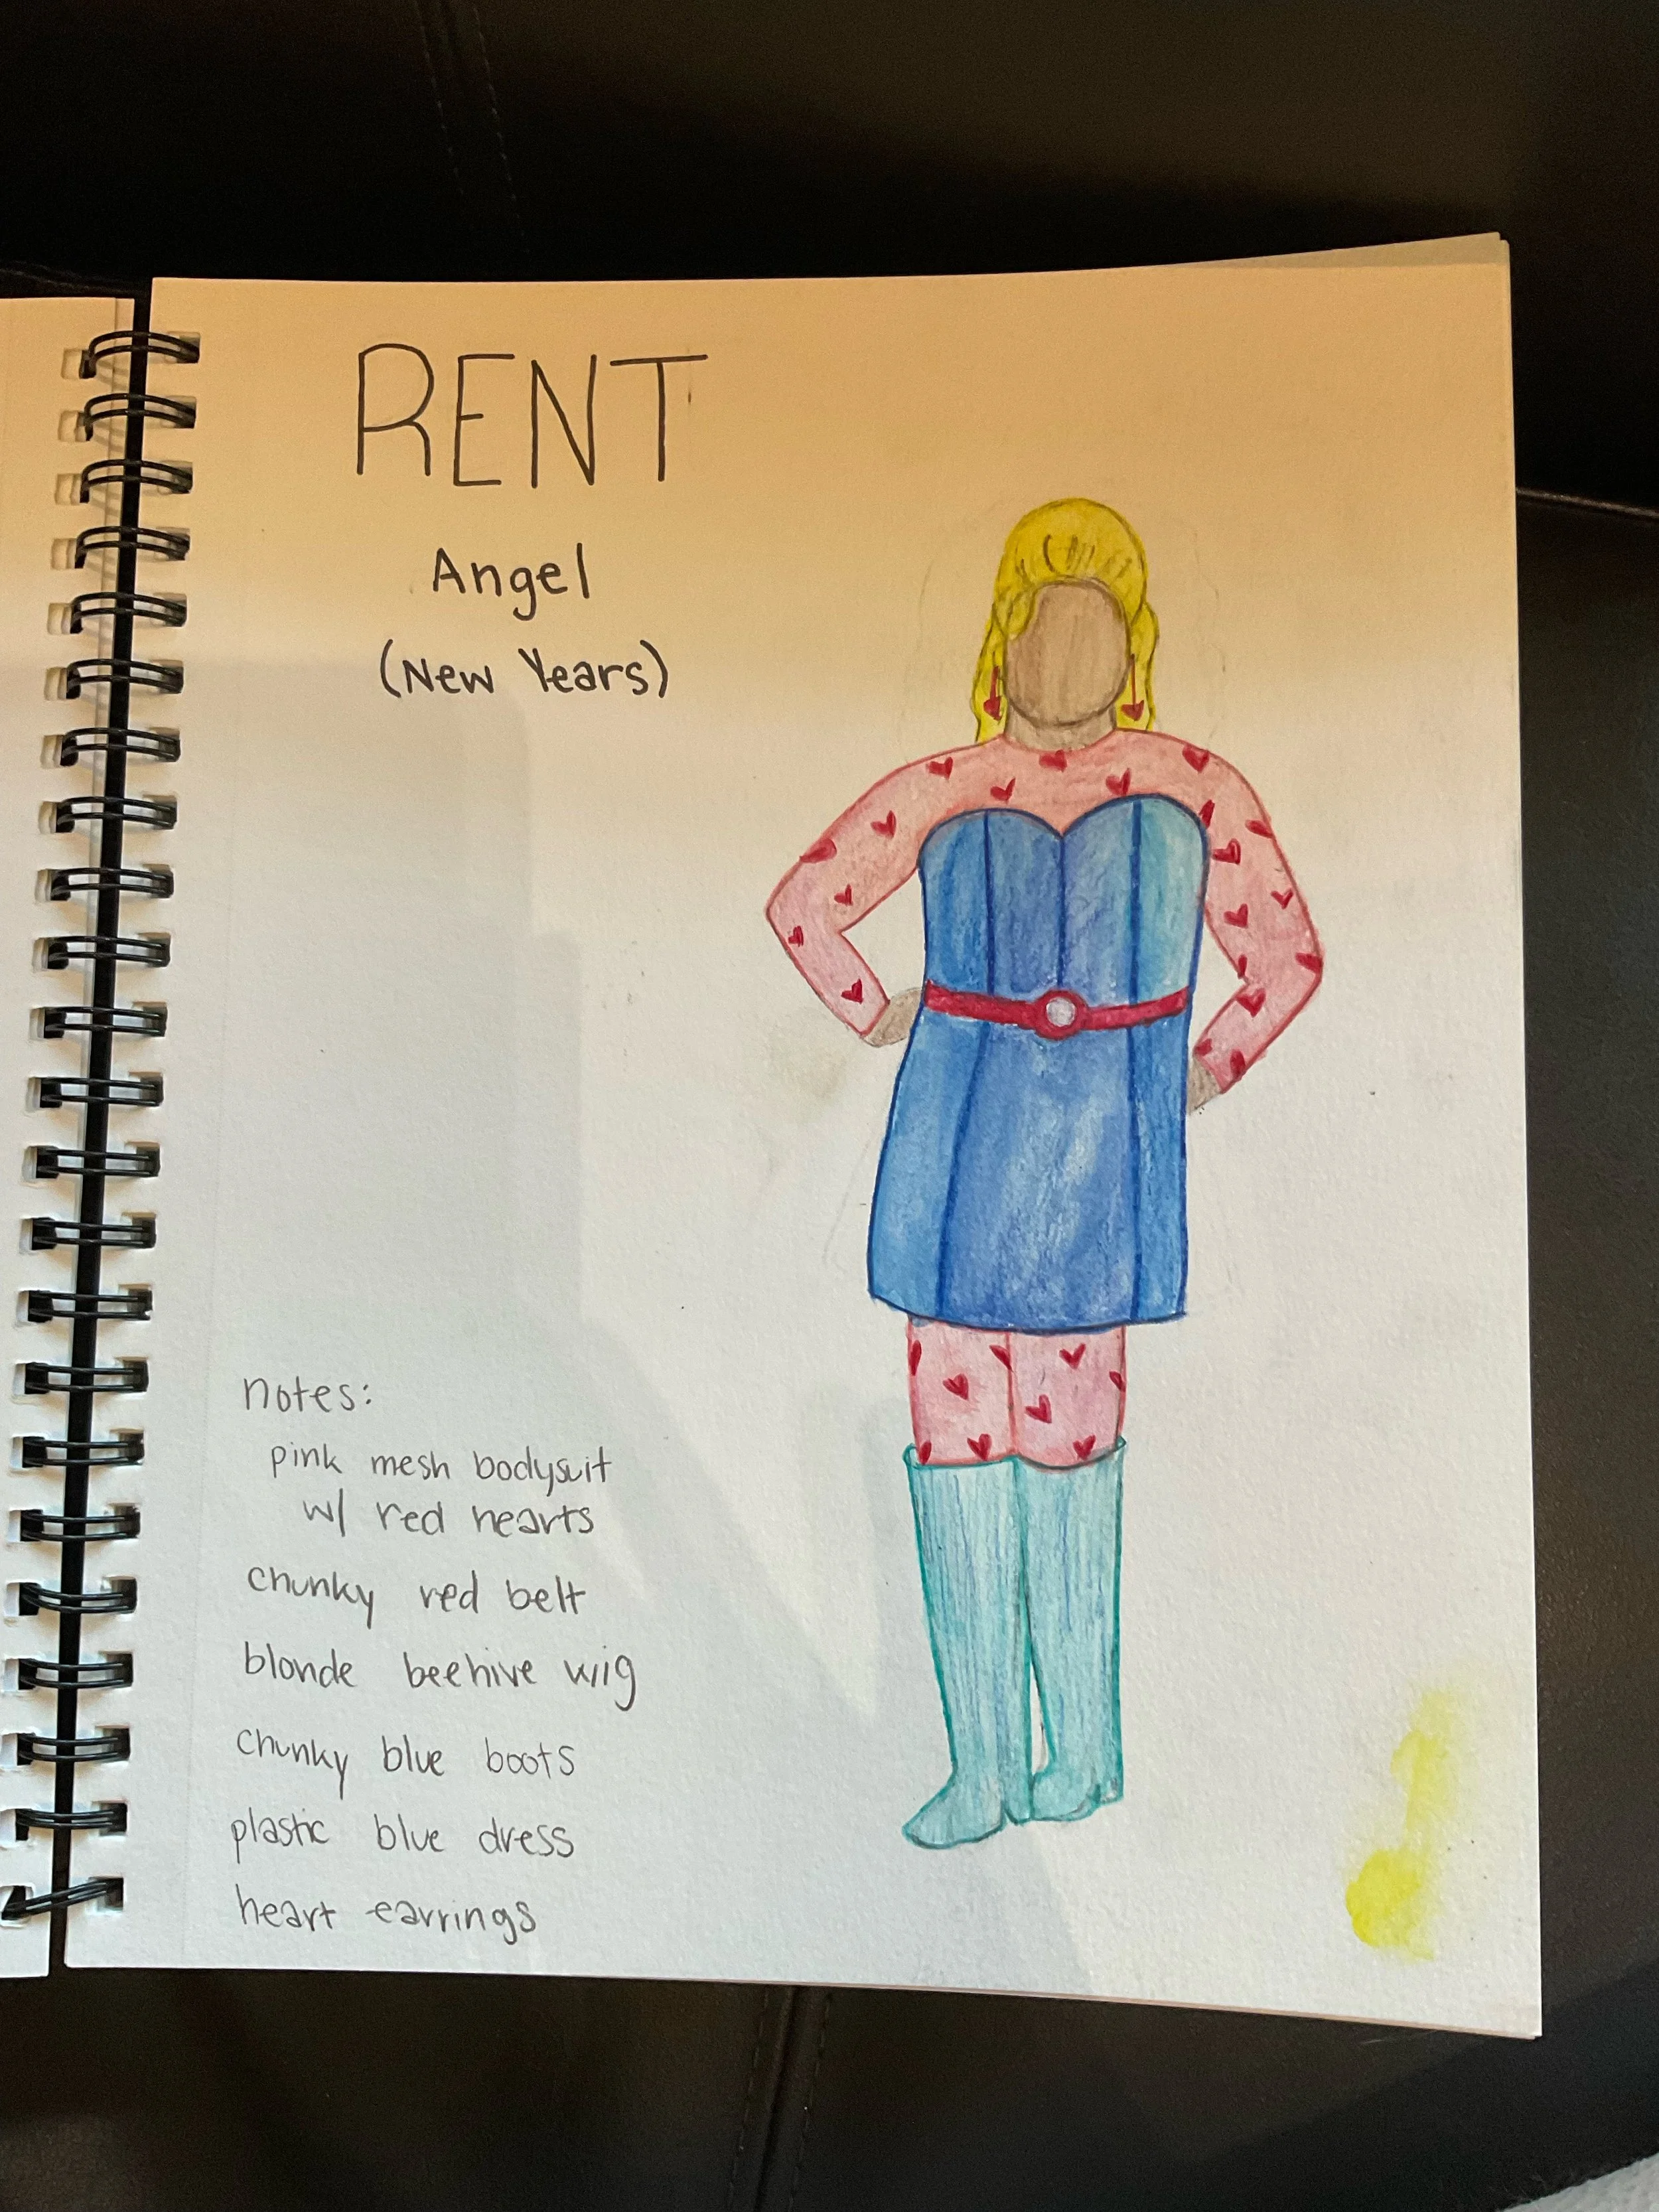 RENT
Angel
(New Years)
notes:
pink mesh bodysuit
w/ red hearts
chunky red belt
blonde beehive wig
chunky blue boots
plastic blue dress
heart earrings